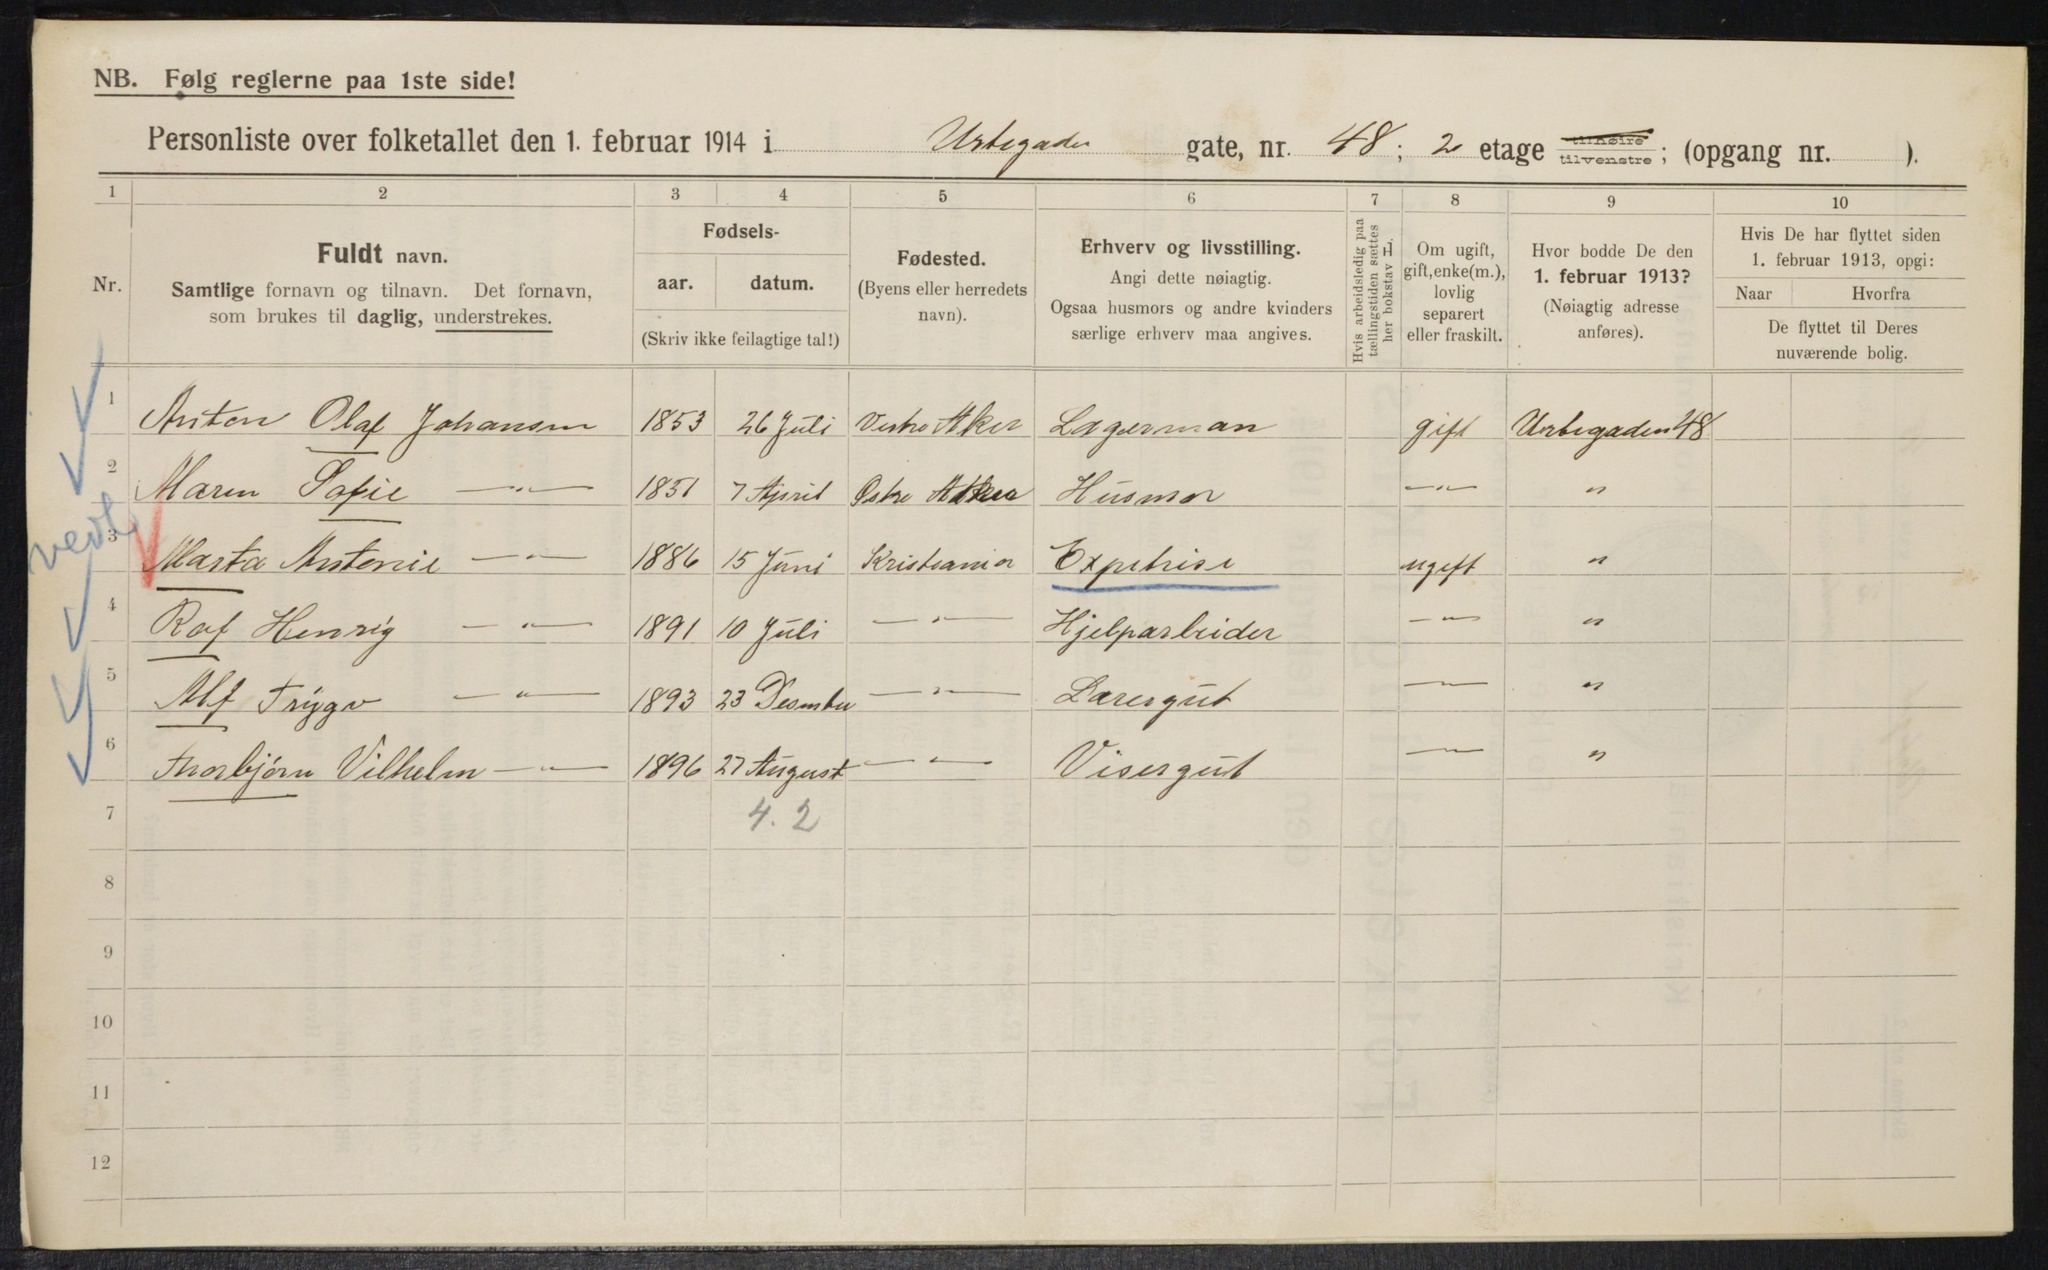 NB. Følg reglerne paa 1ste side!
Personliste over folketallet den 1. februar 1914 i Urtegaden gate, nr. 48; 2 etage tilhøire tilvenstre; (opgang nr. ).
1 2 3 4 5 6 7 8 9 10
Nr.
Fuldt navn.
Samtlige fornavn og tilnavn. Det fornavn,
som brukes til daglig, understrekes.
Fødsels-
aar. datum.
(Skriv ikke feilagtige tal!)
Fødested.
(Byens eller herredets
navn).
Erhverv og livsstilling.
Angi dette nøiagtig.
Ogsaa husmors og andre kvinders
særlige erhverv maa angives.
Hvis arbeidsledig paa
tællingstiden sættes
her bokstav L.
Om ugift,
gift, enke(m.),
lovlig
separert
eller fraskilt.
Hvor bodde De den
1. februar 1913?
(Nøiagtig adresse
anføres).
Hvis De har flyttet siden
1. februar 1913, opgi:
Naar Hvorfra
De flyttet til Deres
nuværende bolig.
1 Anton Olaf Johansen 1853 26 Juli Vestre Aker Lagerman gift Urtegaden 48
2 Maren Sofie —"— 1851 7 April Østre Aker Husmor —"— "
3 Marta Antonie —"— 1886 15 Juni Kristiania Expetrise ugift "
4 Rolf Henrig —"— 1891 10 Juli —"— Hjelparbeider —"— "
5 Alf Trygv —"— 1893 23 Desember —"— Læregut —"— "
6 Thorbjørn Vilhelm —"— 1896 27 August —"— Visergut —"— "
4. 2
7
8
9
10
11
12